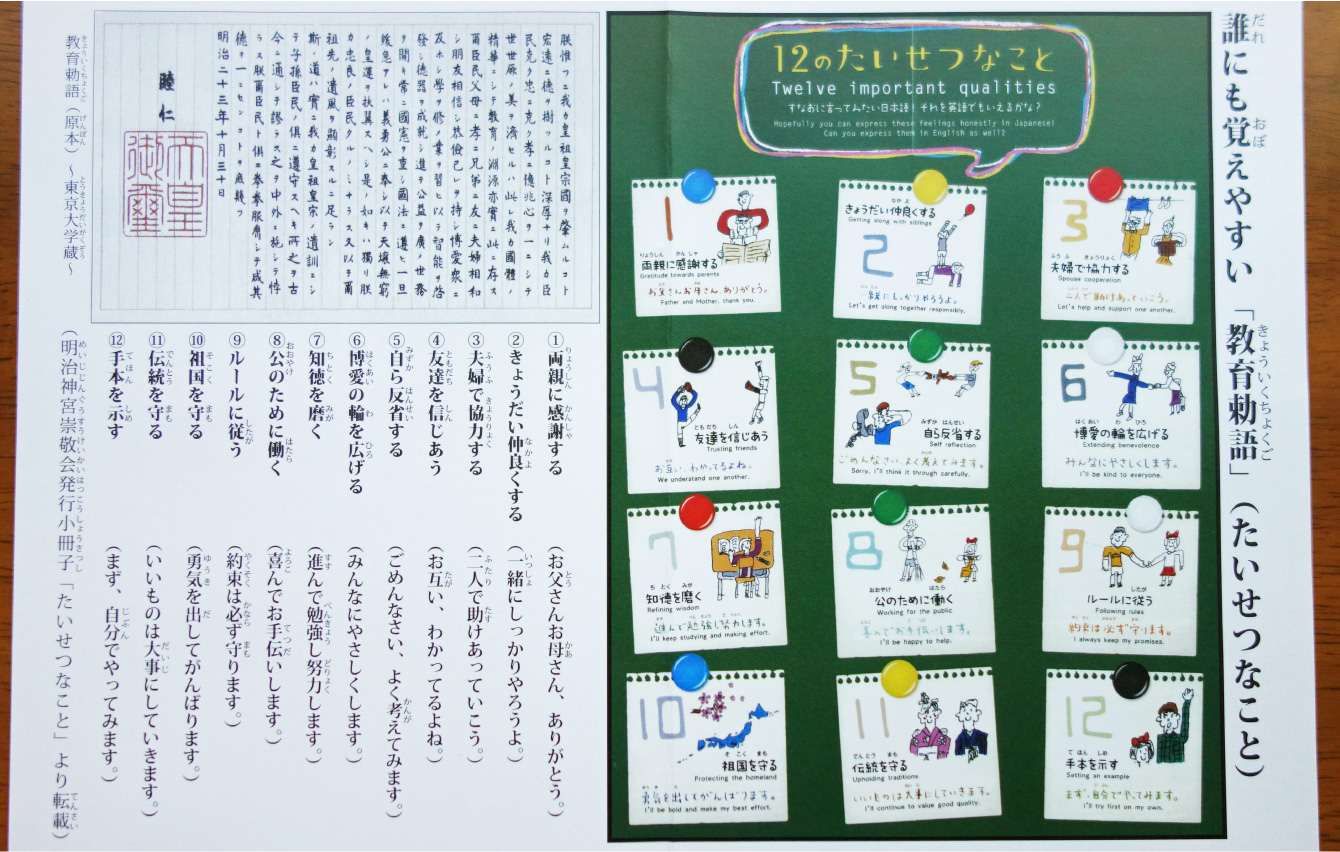 誰にも覚えやすい「教育勅語」(たいせつなこと)
12のたいせつなこと
Twelve important qualities
すなおに言ってみたい日本語!それを英語でもいえるかな?
Hopefully you can express these feelings honestly in Japanese!
Can you express them in English as well?
1
両親に感謝する
Gratitude towards parents
お父さんお母さん、ありがとう。
Father and Mother, thank you.
きょうだい仲良くする
Getting along with siblings
2
一緒にしっかりやろうよ。
Let's get along together responsibly.
3
夫婦で協力する
Spouse cooperation
二人で助けあっていこう。
Let's help and support one another.
4
友達を信じあう
Trusting friends
お互い、わかってるよね。
We understand one another.
5
自ら反省する
Self reflection
ごめんなさい、よく考えてみます。
Sorry, I'll think it through carefully.
6
博愛の輪を広げる
Extending benevolence
みんなにやさしくします。
I'll be kind to everyone.
7
知徳を磨く
Refining wisdom
進んで勉強し努力します。
I'll keep studying and making effort.
8
公のために働く
Working for the public
喜んでお手伝いします。
I'll be happy to help.
9
ルールに従う
Following rules
約束は必ず守ります。
I always keep my promises.
10
祖国を守る
Protecting the homeland
勇気を出してがんばります。
I'll be bold and make my best effort.
11
伝統を守る
Upholding traditions
いいものは大事にしていきます。
I'll continue to value good quality.
12
手本を示す
Setting an example
まず、自分でやってみます。
I'll try first on my own.
朕惟フニ我カ皇祖皇宗國ヲ肇ムルコト
宏遠ニ德ヲ樹ツルコト深厚ナリ我カ臣
民克ク忠ニ克ク孝ニ億兆心ヲ一ニシテ
世世厥ノ美ヲ濟セルハ此レ我カ國體ノ
精華ニシテ教育ノ淵源亦實ニ此ニ存ス
爾臣民父母ニ孝ニ兄弟ニ友ニ夫婦相和
シ朋友相信シ恭儉己レヲ持シ博愛衆ニ
及ホシ學ヲ修メ業ヲ習ヒ以テ智能ヲ啓
發シ德器ヲ成就シ進テ公益ヲ廣メ世務
ヲ開キ常ニ國憲ヲ重シ國法ニ遵ヒ一旦
緩急アレハ義勇公ニ奉シ以テ天壤無窮
ノ皇運ヲ扶翼スヘシ是ノ如キハ獨リ朕
カ忠良ノ臣民タルノミナラス又以テ爾
祖先ノ遺風ヲ顯彰スルニ足ラン
斯ノ道ハ實ニ我カ皇祖皇宗ノ遺訓ニシ
テ子孫臣民ノ俱ニ遵守スヘキ所之ヲ古
今ニ通シテ謬ラス之ヲ中外ニ施シテ悖
ラス朕爾臣民ト俱ニ拳拳服膺シテ咸其
德ヲ一ニセンコトヲ庶幾フ
明治二十三年十月三十日
睦仁
天皇
御璽
教育勅語(原本)~東京大学蔵~
①両親に感謝する (お父さんお母さん、ありがとう。)
②きょうだい仲良くする (一緒にしっかりやろうよ。)
③夫婦で協力する (二人で助けあっていこう。)
④友達を信じあう (お互い、わかってるよね。)
⑤自ら反省する (ごめんなさい、よく考えてみます。)
⑥博愛の輪を広げる (みんなにやさしくします。)
⑦知徳を磨く (進んで勉強し努力します。)
⑧公のために働く (喜んでお手伝いします。)
⑨ルールに従う (約束は必ず守ります。)
⑩祖国を守る (勇気を出してがんばります。)
⑪伝統を守る (いいものは大事にしていきます。)
⑫手本を示す (まず、自分でやってみます。)
(明治神宮崇敬会発行小冊子「たいせつなこと」より転載)